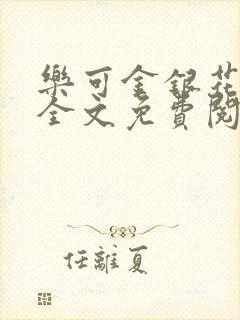 樂可金銀花
全文免費閱
任離夏